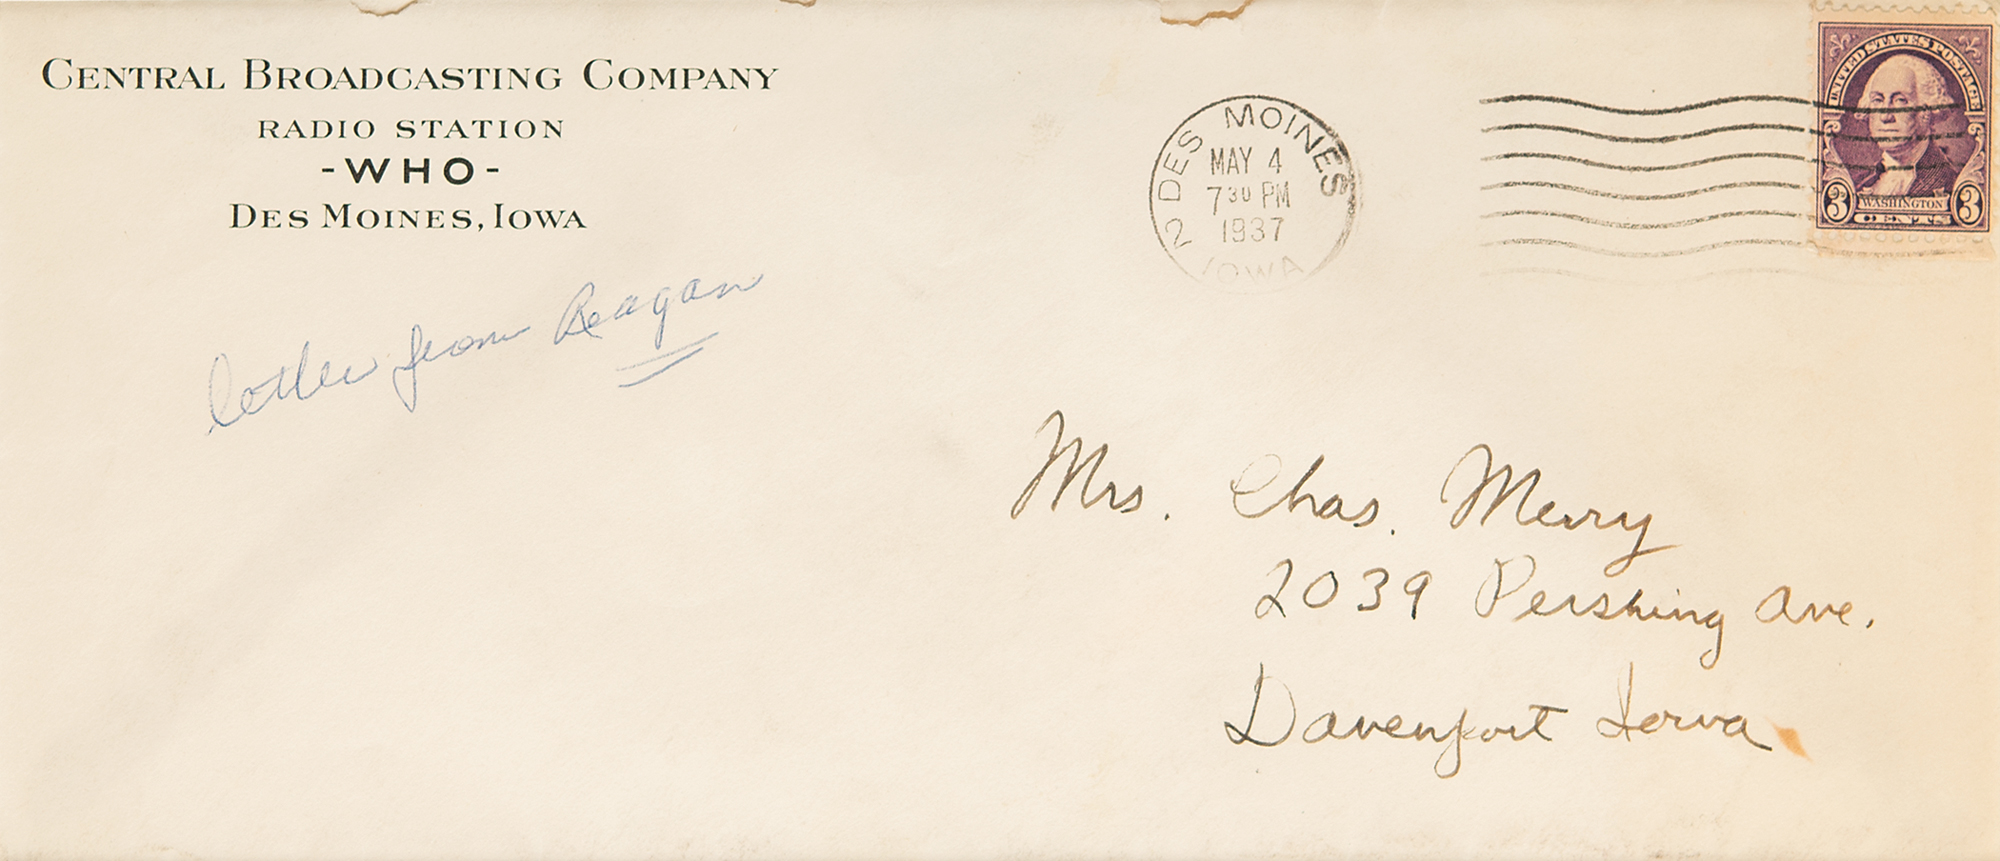 CENTRAL BROADCASTING COMPANY
RADIO STATION
-WHO-
DES MOINES, IOWA
letter from Reagan
2 DES MOINES
MAY 4
7 30 PM
1937
IOWA
UNITED STATES POSTAGE
3 WASHINGTON 3
CENTS
Mrs. Chas. Merry
2039 Pershing Ave.
Davenport Iowa